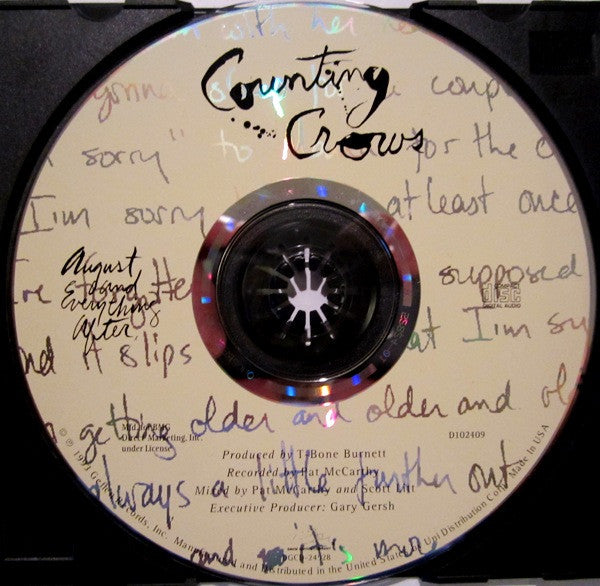 with her
gonna couple
Counting
Crows
sorry" to for the
I'm sorry at least once
August
and
Everything
After
supposed
COMPACT
disc
DIGITAL AUDIO
at I'm su
nd it slips
getting older and older and
Mfd. for BMG
Direct Marketing, Inc.
under License
D102409
Produced by T-Bone Burnett
Recorded by Pat McCarthy
always a little further out
Mixed by Pat McCarthy and Scott Litt
Executive Producer: Gary Gersh
and it's more
DGCD-24528
℗ © 1993 Geffen Records, Inc. Manufactured and Distributed in the United States by Uni Distribution Corp. Made In USA